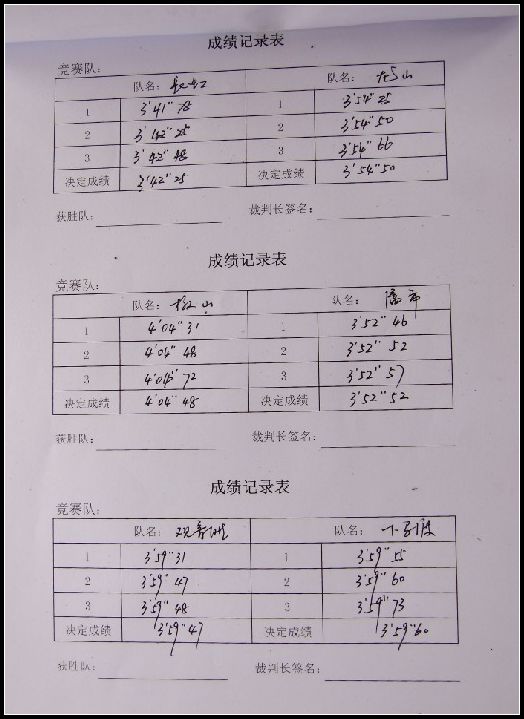 成绩记录表
竞赛队:
队名: 队名:
1 3'41"78 1 3'54"25
2 3'42"25 2 3'54"50
3 3'42"48 3 3'54"66
决定成绩 3'42"25 决定成绩 3'54"50
获胜队: 裁判长签名:
成绩记录表
竞赛队:
队名: 队名:
1 4'04"31 1 3'52"46
2 4'04"48 2 3'52"52
3 4'04"72 3 3'52"57
决定成绩 4'04"48 决定成绩 3'52"52
获胜队: 裁判长签名:
成绩记录表
竞赛队:
队名: 观音洲 队名:
1 3'59"31 1 3'59"55
2 3'59"47 2 3'59"60
3 3'59"48 3 3'59"73
决定成绩 3'59"47 决定成绩 3'59"60
获胜队: 裁判长签名: